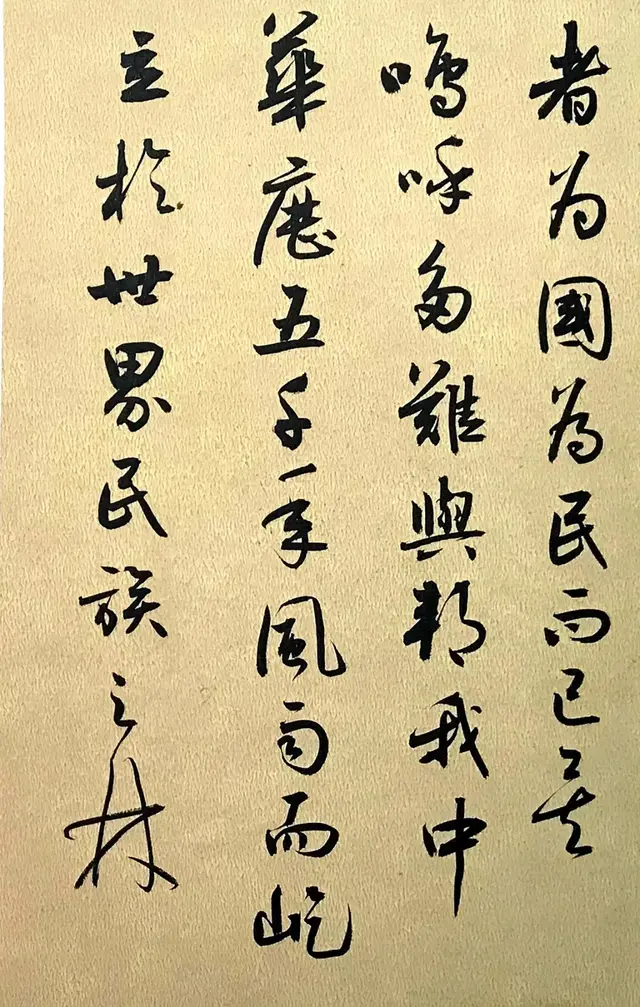 者为國為民而已矣
嗚呼多難興邦我中
華歷五千年風雨而屹
立於世界民族之林